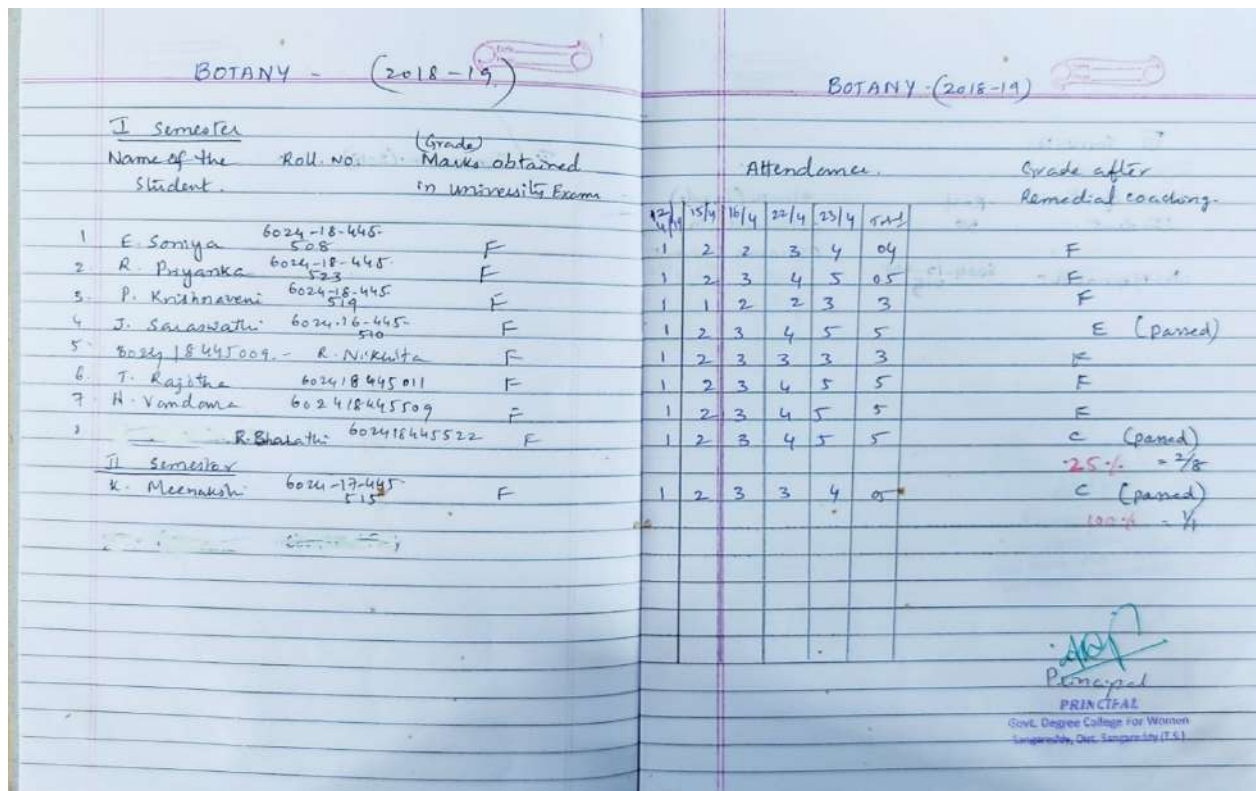 BOTANY - (2018-19)
I Semester
Name of the Student. Roll. No. (Grade) Marks obtained in university Exams
1 E. Soniya 6024-18-445-508 F
2 R. Priyanka 6024-18-445-523 F
3. P. Krishnaveni 6024-18-445-519 F
4 J. Saraswathi 6024-16-445-510 F
5 602418445009. - R. Nikhita F
6. T. Rajitha 602418445011 F
7 H. Vandana 602418445509 F
R. Bharathi 602418445522 F
II Semester
K. Meenakshi 6024-17-445-515 F
BOTANY - (2018-19)
Attendance. Grade after Remedial coaching.
12/4/19 15/4 16/4 22/4 23/4 Total
1 2 2 3 4 04 F
1 2 3 4 5 05 F
1 1 2 2 3 3 F
1 2 3 4 5 5 E (passed)
1 2 3 3 3 3 F
1 2 3 4 5 5 F
1 2 3 4 5 5 F
1 2 3 4 5 5 C (passed)
25% = 2/8
1 2 3 3 4 05 C (passed)
100% = 1/1
Principal
PRINCIPAL
Govt. Degree College For Women
Sangareddy, Dist. Sangareddy (T.S.)